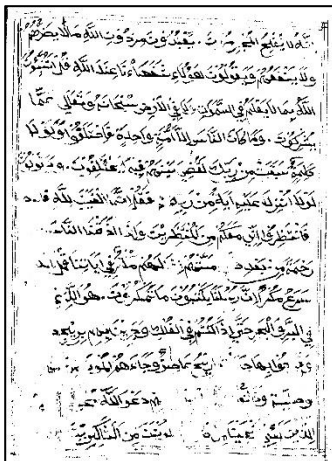 انه لا يفلح المجرمون ويعبدون من دون الله ما لا يضرهم
ولا ينفعهم ويقولون هؤلاء شفعاؤنا عند الله قل اتنبئون
الله بما لا يعلم في السموات ولا في الارض سبحانه وتعالى عما
يشركون وما كان الناس الا امة واحدة فاختلفوا ولولا
كلمة سبقت من ربك لقضي بينهم فيما فيه يختلفون ويقولون
لولا انزل عليه اية من ربه فقل انما الغيب لله
فانتظروا اني معكم من المنتظرين واذا اذقنا الناس
رحمة من بعد مستهم لهم مكر في اياتنا قل الله
اسرع مكرا ان رسلنا يكتبون ما تمكرون هو الذي
في البر والبحر حتى اذا كنتم في الفلك وجرين بهم بريح
بها ريح عاصف وجاءهم الموج من
دعوا الله
من